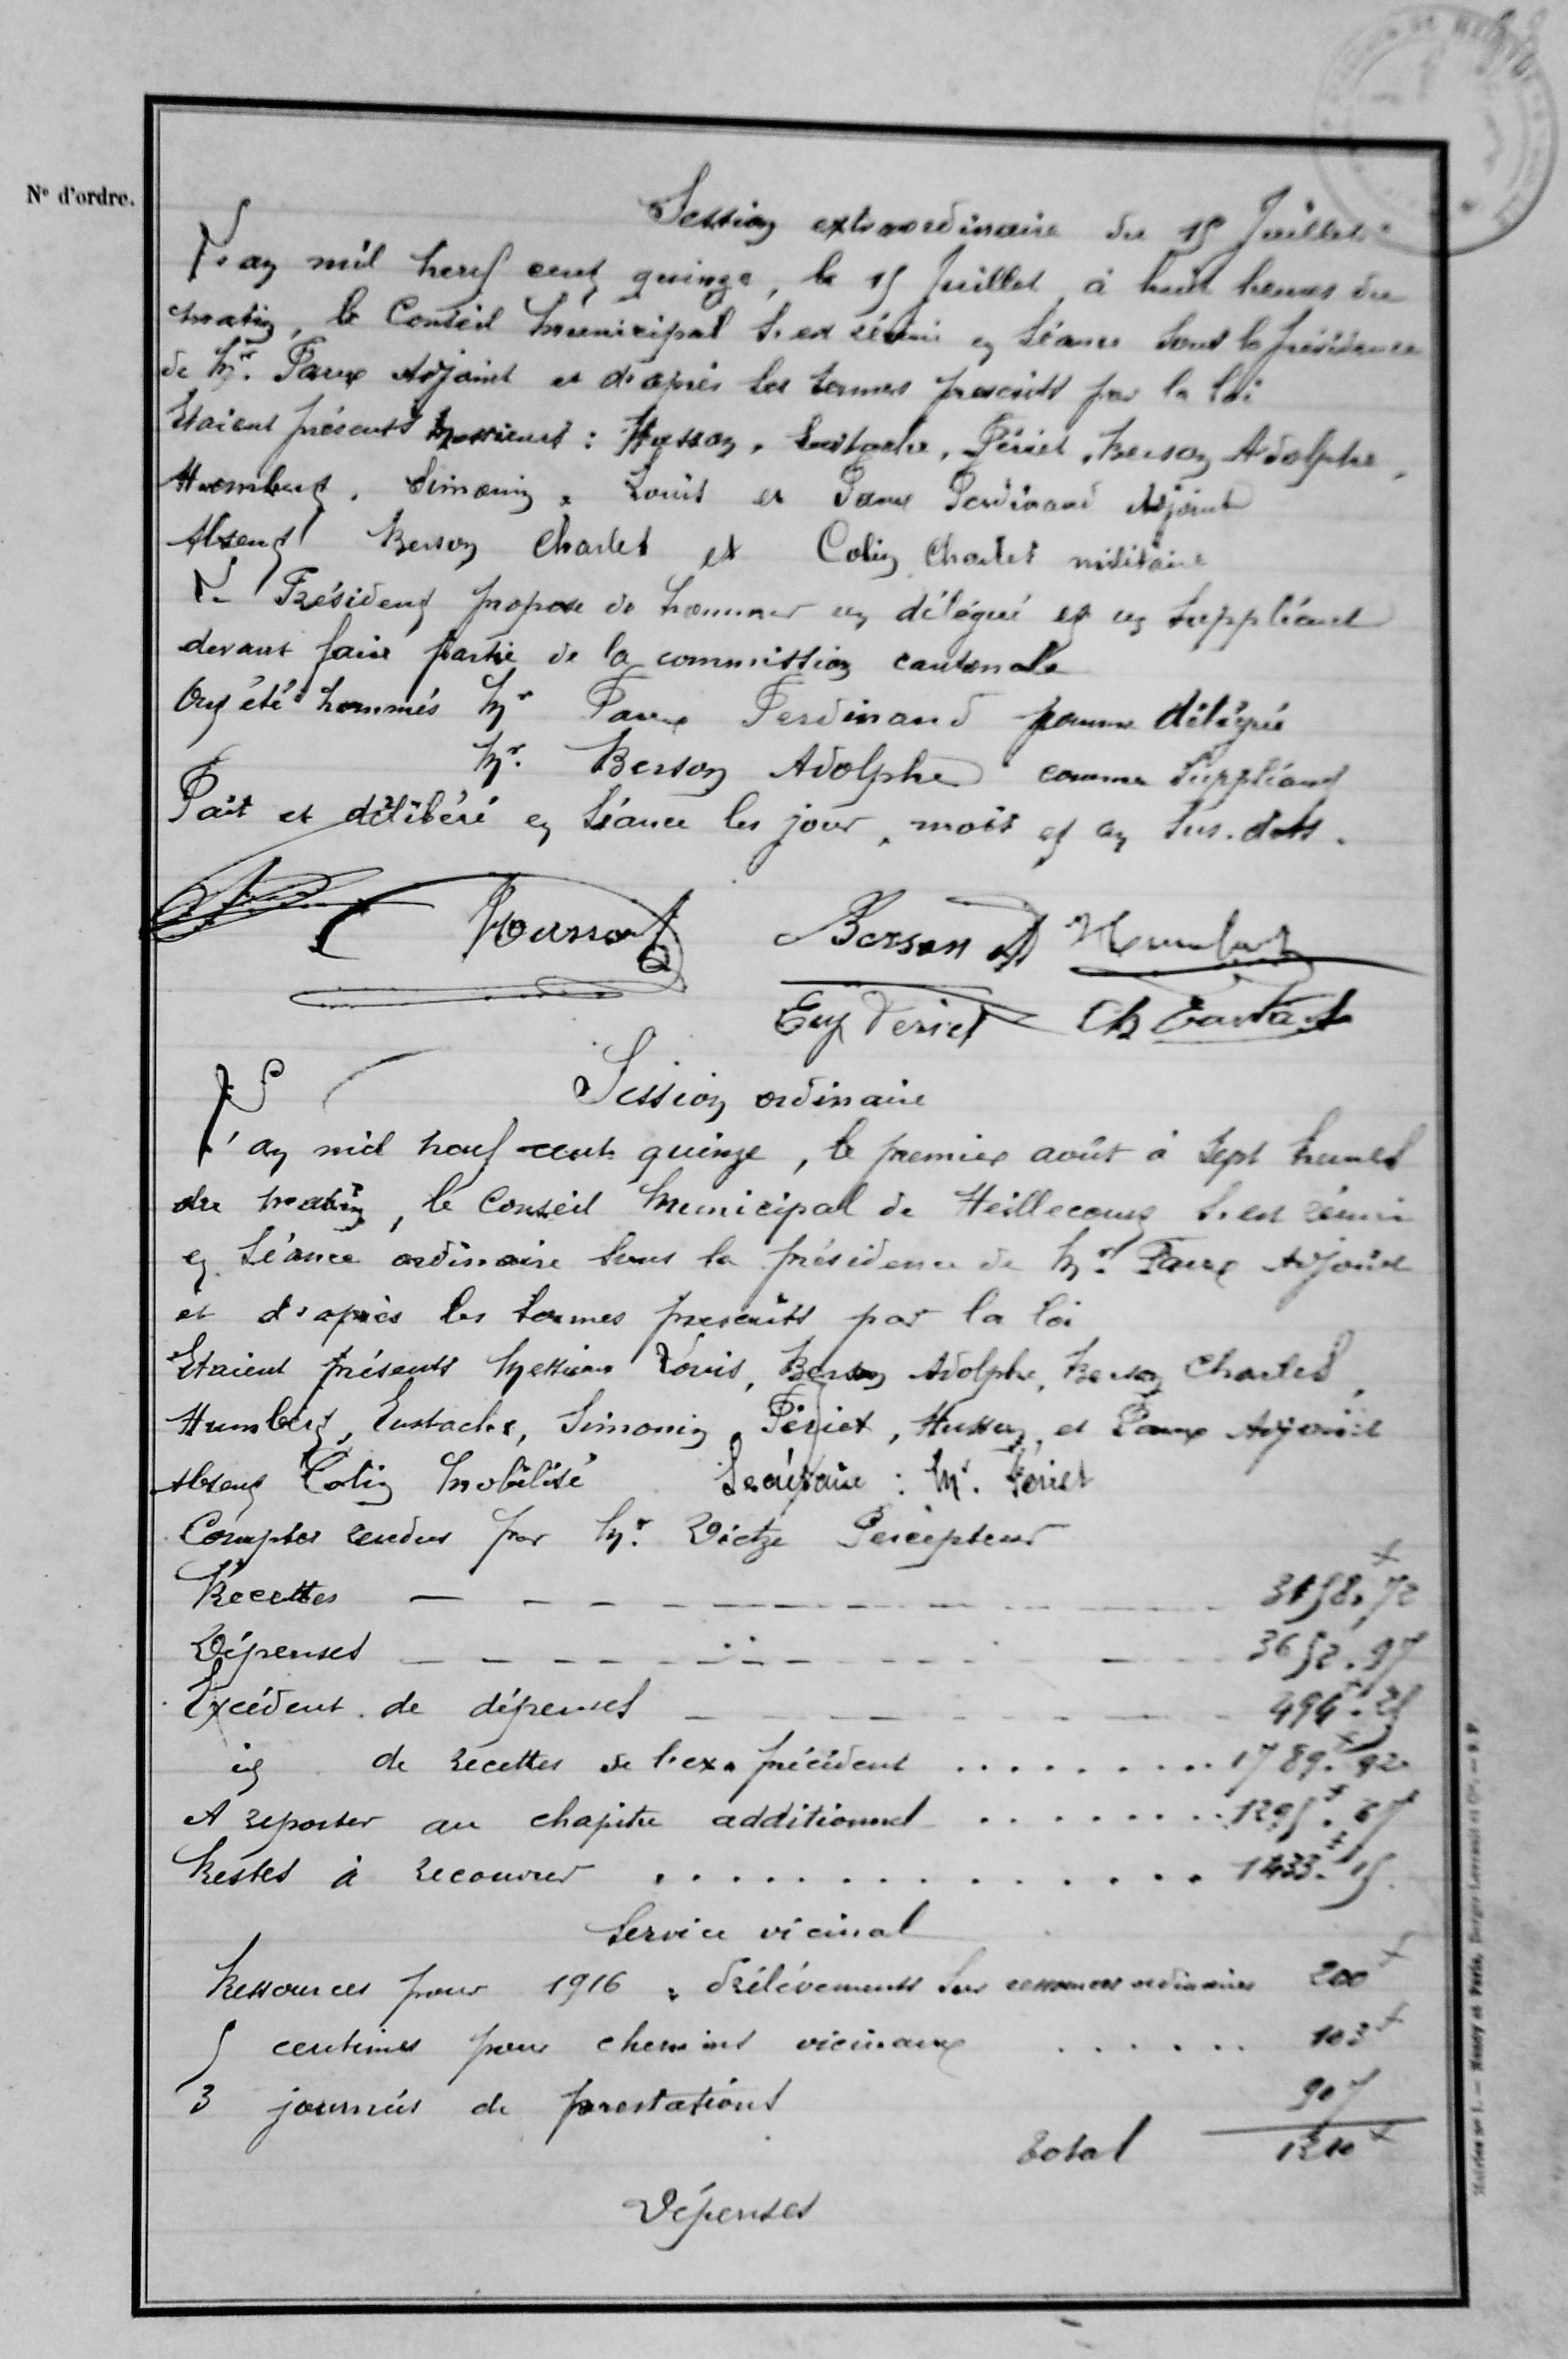 N° d'ordre.
Session extraordinaire du 15 Juillet
L'an mil neuf cent quinze, le 15 Juillet, à huit heures du
matin, le Conseil Municipal s'est réuni en séance sous la présidence
de Mr. Faux Adjoint et d'après les termes prescrits par la loi
Etaient présents Messieurs : Husson, Eustache, Périet, Berson Adolphe,
Humbert, Simonin, Louis et Faux Ferdinand Adjoint
Absent Berson Charles et Colin Charles militaire
Le Président propose de nommer un délégué et un suppléant
devant faire partie de la commission cantonale
Ont été nommés Mr Faux Ferdinand comme délégué
Mr. Berson Adolphe comme suppléant
Fait et délibéré en séance les jour, mois et an sus-dits.
Housson Berson A Humbert
Eug Periet Ch Eustache
Session ordinaire
L'an mil neuf cent quinze, le premier août à sept heures
du matin, le Conseil Municipal de Heillecourt s'est réuni
en séance ordinaire sous la présidence de Mr. Faux Adjoint
et d'après les termes prescrits par la loi
Etaient présents Messieurs Louis, Berson Adolphe, Berson Charles,
Humbert, Eustache, Simonin, Périet, Husson, et Faux Adjoint
Absent Colin Mobilisé Secrétaire : Mr. Périet
Comptes rendus par Mr. Dietze Percepteur
Recettes 3158.72
Dépenses 3652.97
Excédent de dépenses 494.25
id de recettes de l'ex. précédent 1789.92
A reporter au chapitre additionnel 1295.67
Restes à recouvrer 1433.15
Service vicinal
Ressources pour 1916, Prélèvements sur ressources ordinaires 200
5 centimes pour chemins vicinaux 103
3 journées de prestations 907
Total 1210
Dépenses